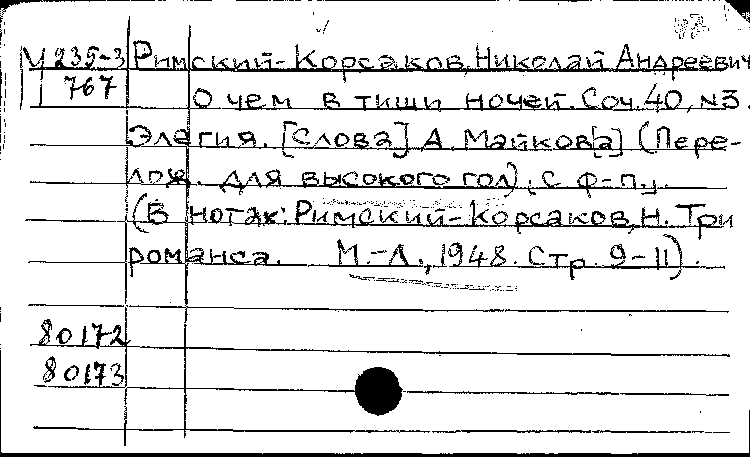 М 235-3 Римский-Корсаков, Николай Андреевич
767 О чем в тиши ночей. Соч. 40, №3.
Элегия. [Слова] А. Майков[а] (Пере-
лож. для высокого гол), с ф-п.
(В нотах: Римский-Корсаков, Н. Три
романса. М.-Л., 1948. Стр. 9-11).
80172
80173